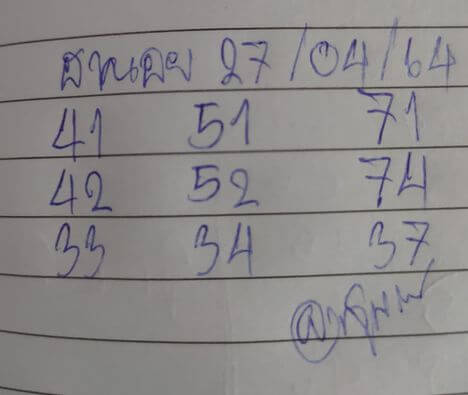 ฮานอย 27/04/64
41 51 71
42 52 74
33 34 37